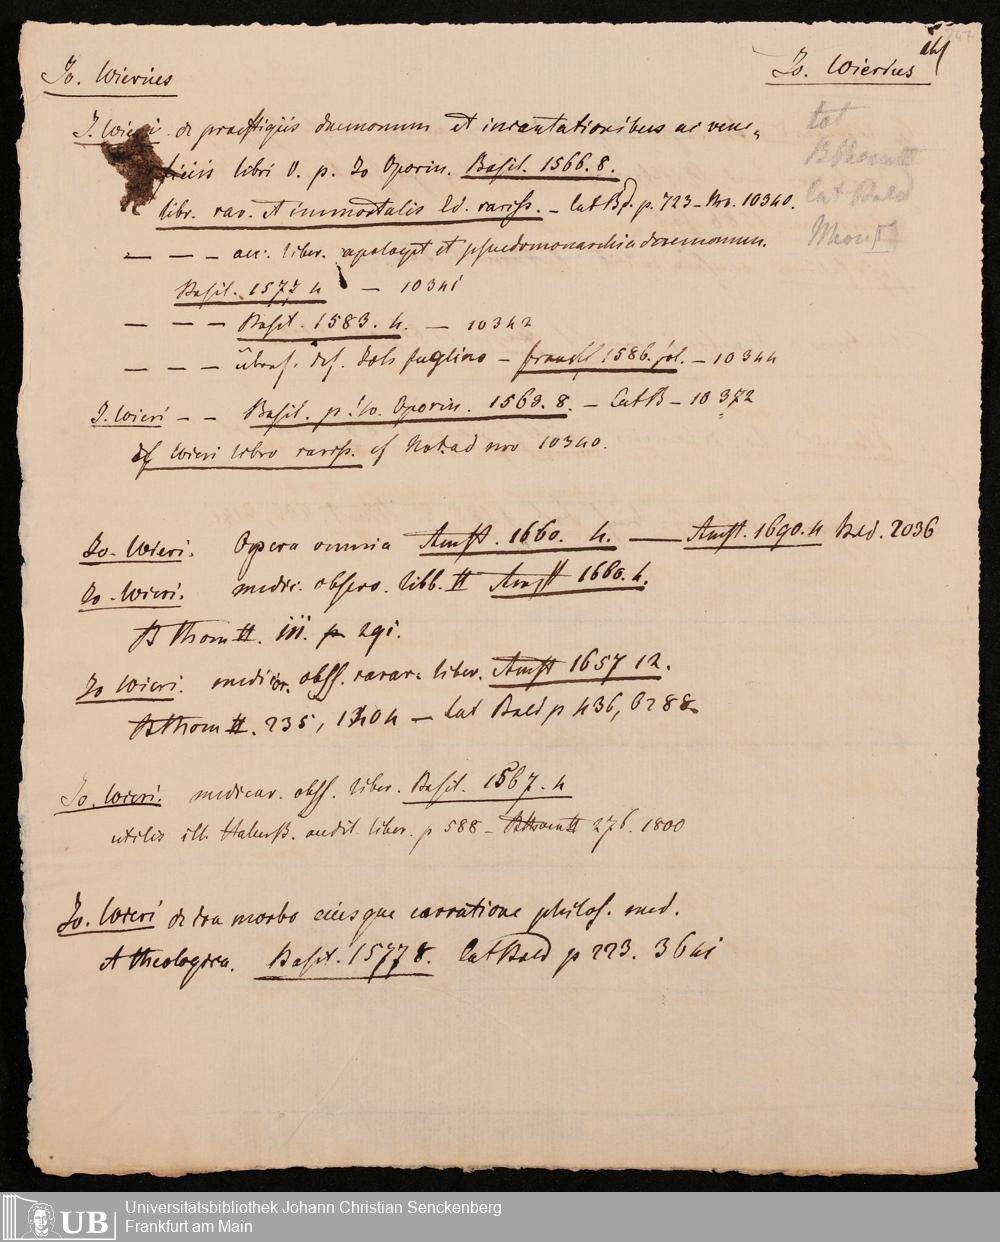 Jo. Wierius
Jo. Wierius
J. Wieri de praestigiis daemonum et incantationibus ac vene„
ficiis libri V. p. Jo Oporin. Basil. 1566. 8.
libr. rar. et immortalis Ed. rariss. – Cat Bd. p. 723 – Nro. 10340.
tot
B Thom II
Cat Bald
Thom II
– – – acc. liber. apologet et pseudomonarchia daemonum.
Basil. 1577 4 – 10341
– – – Basil. 1583. 4. – 10342
– – – übers. – Francf 1586. fol. – 10344
J. Wieri – – Basil. p. Jo. Oporin. 1563. 8. – Cat B – 10372
Wieri libro rariss. cf Not. ad nro 10340.
Jo. Wieri. Opera omnia Amst. 1660. 4. — Amst. 1690. 4 Bald. 2036
Jo. Wieri. medic. observ. libb. II Amst 1660. 4.
B Thom II. III. p 291.
Jo Wieri. medicar. obss. rarar. liber. Amst 1657 12.
B Thom II. 235, 1404 – Cat Bald p 436, 6288
Jo. Wieri. medicar. obss. liber. Basil. 1567. 4
utilis liber. p 588 – B Thom II 276. 1800
Jo. Wieri de ira morbo eiusque curatione philos. med.
et theologica. Basil. 1577 8. Cat Bald p 223. 3641
UB
Universitätsbibliothek Johann Christian Senckenberg
Frankfurt am Main